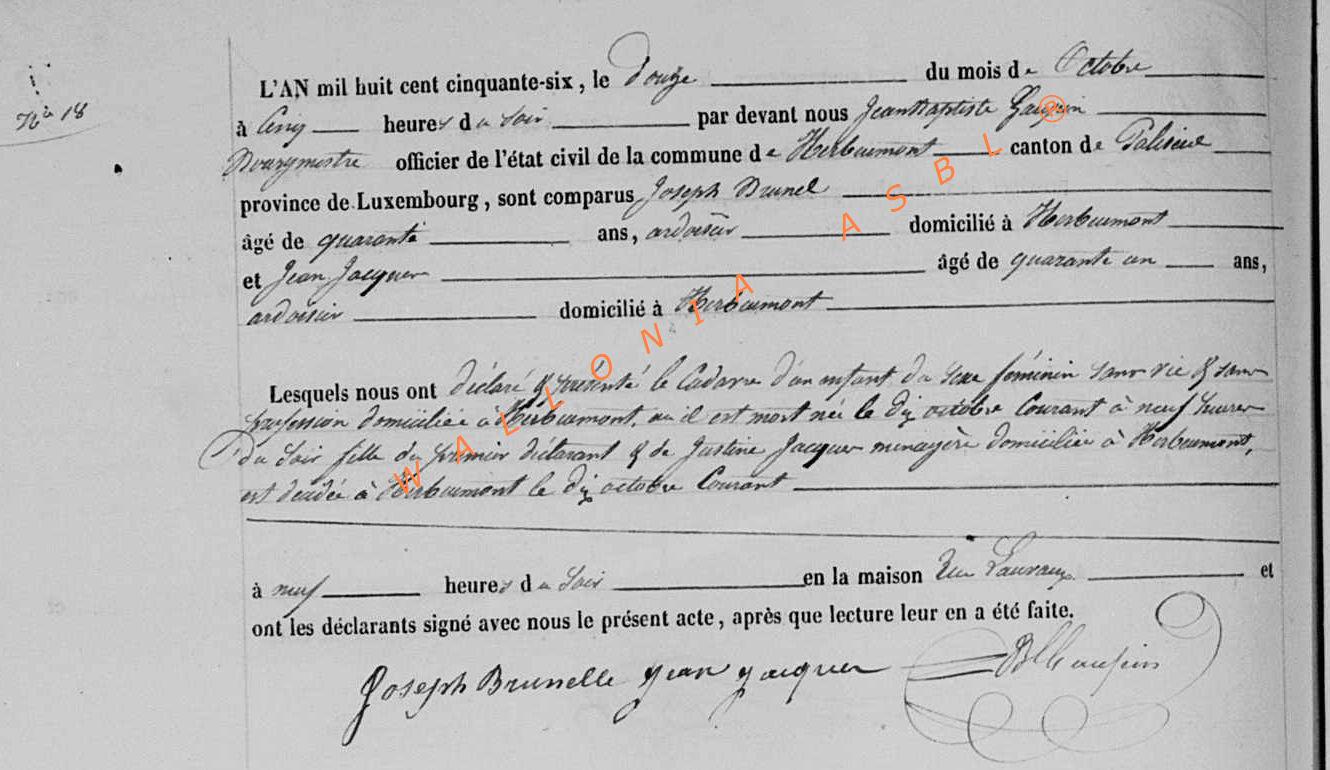 N° 18
L'AN mil huit cent cinquante-six, le Douze du mois de Octobre
à Cinq heures du Soir par devant nous Jean Baptiste
Bourgmestre officier de l'état civil de la commune de Herbeumont canton de Paliseul
province de Luxembourg, sont comparus Joseph Brunel
âgé de quarante ans, ardoisier domicilié à Herbeumont
et Jean Jacques âgé de quarante un ans,
ardoisier domicilié à Herbeumont
Lesquels nous ont déclaré & présenté le Cadavre d'un enfant du Sexe féminin sans vie & sans
profession domiciliée à Herbeumont, où il est mort née le dix octobre Courant à neuf heures
Du Soir fille du premier déclarant & de Justine Jacques menagère domiciliée à Herbeumont,
est décédée à Herbeumont le dix octobre Courant
à neuf heures du Soir en la maison et
ont les déclarants signé avec nous le présent acte, après que lecture leur en a été faite.
Joseph Brunelle Jean Jacques
WALLONIA ASBL ®